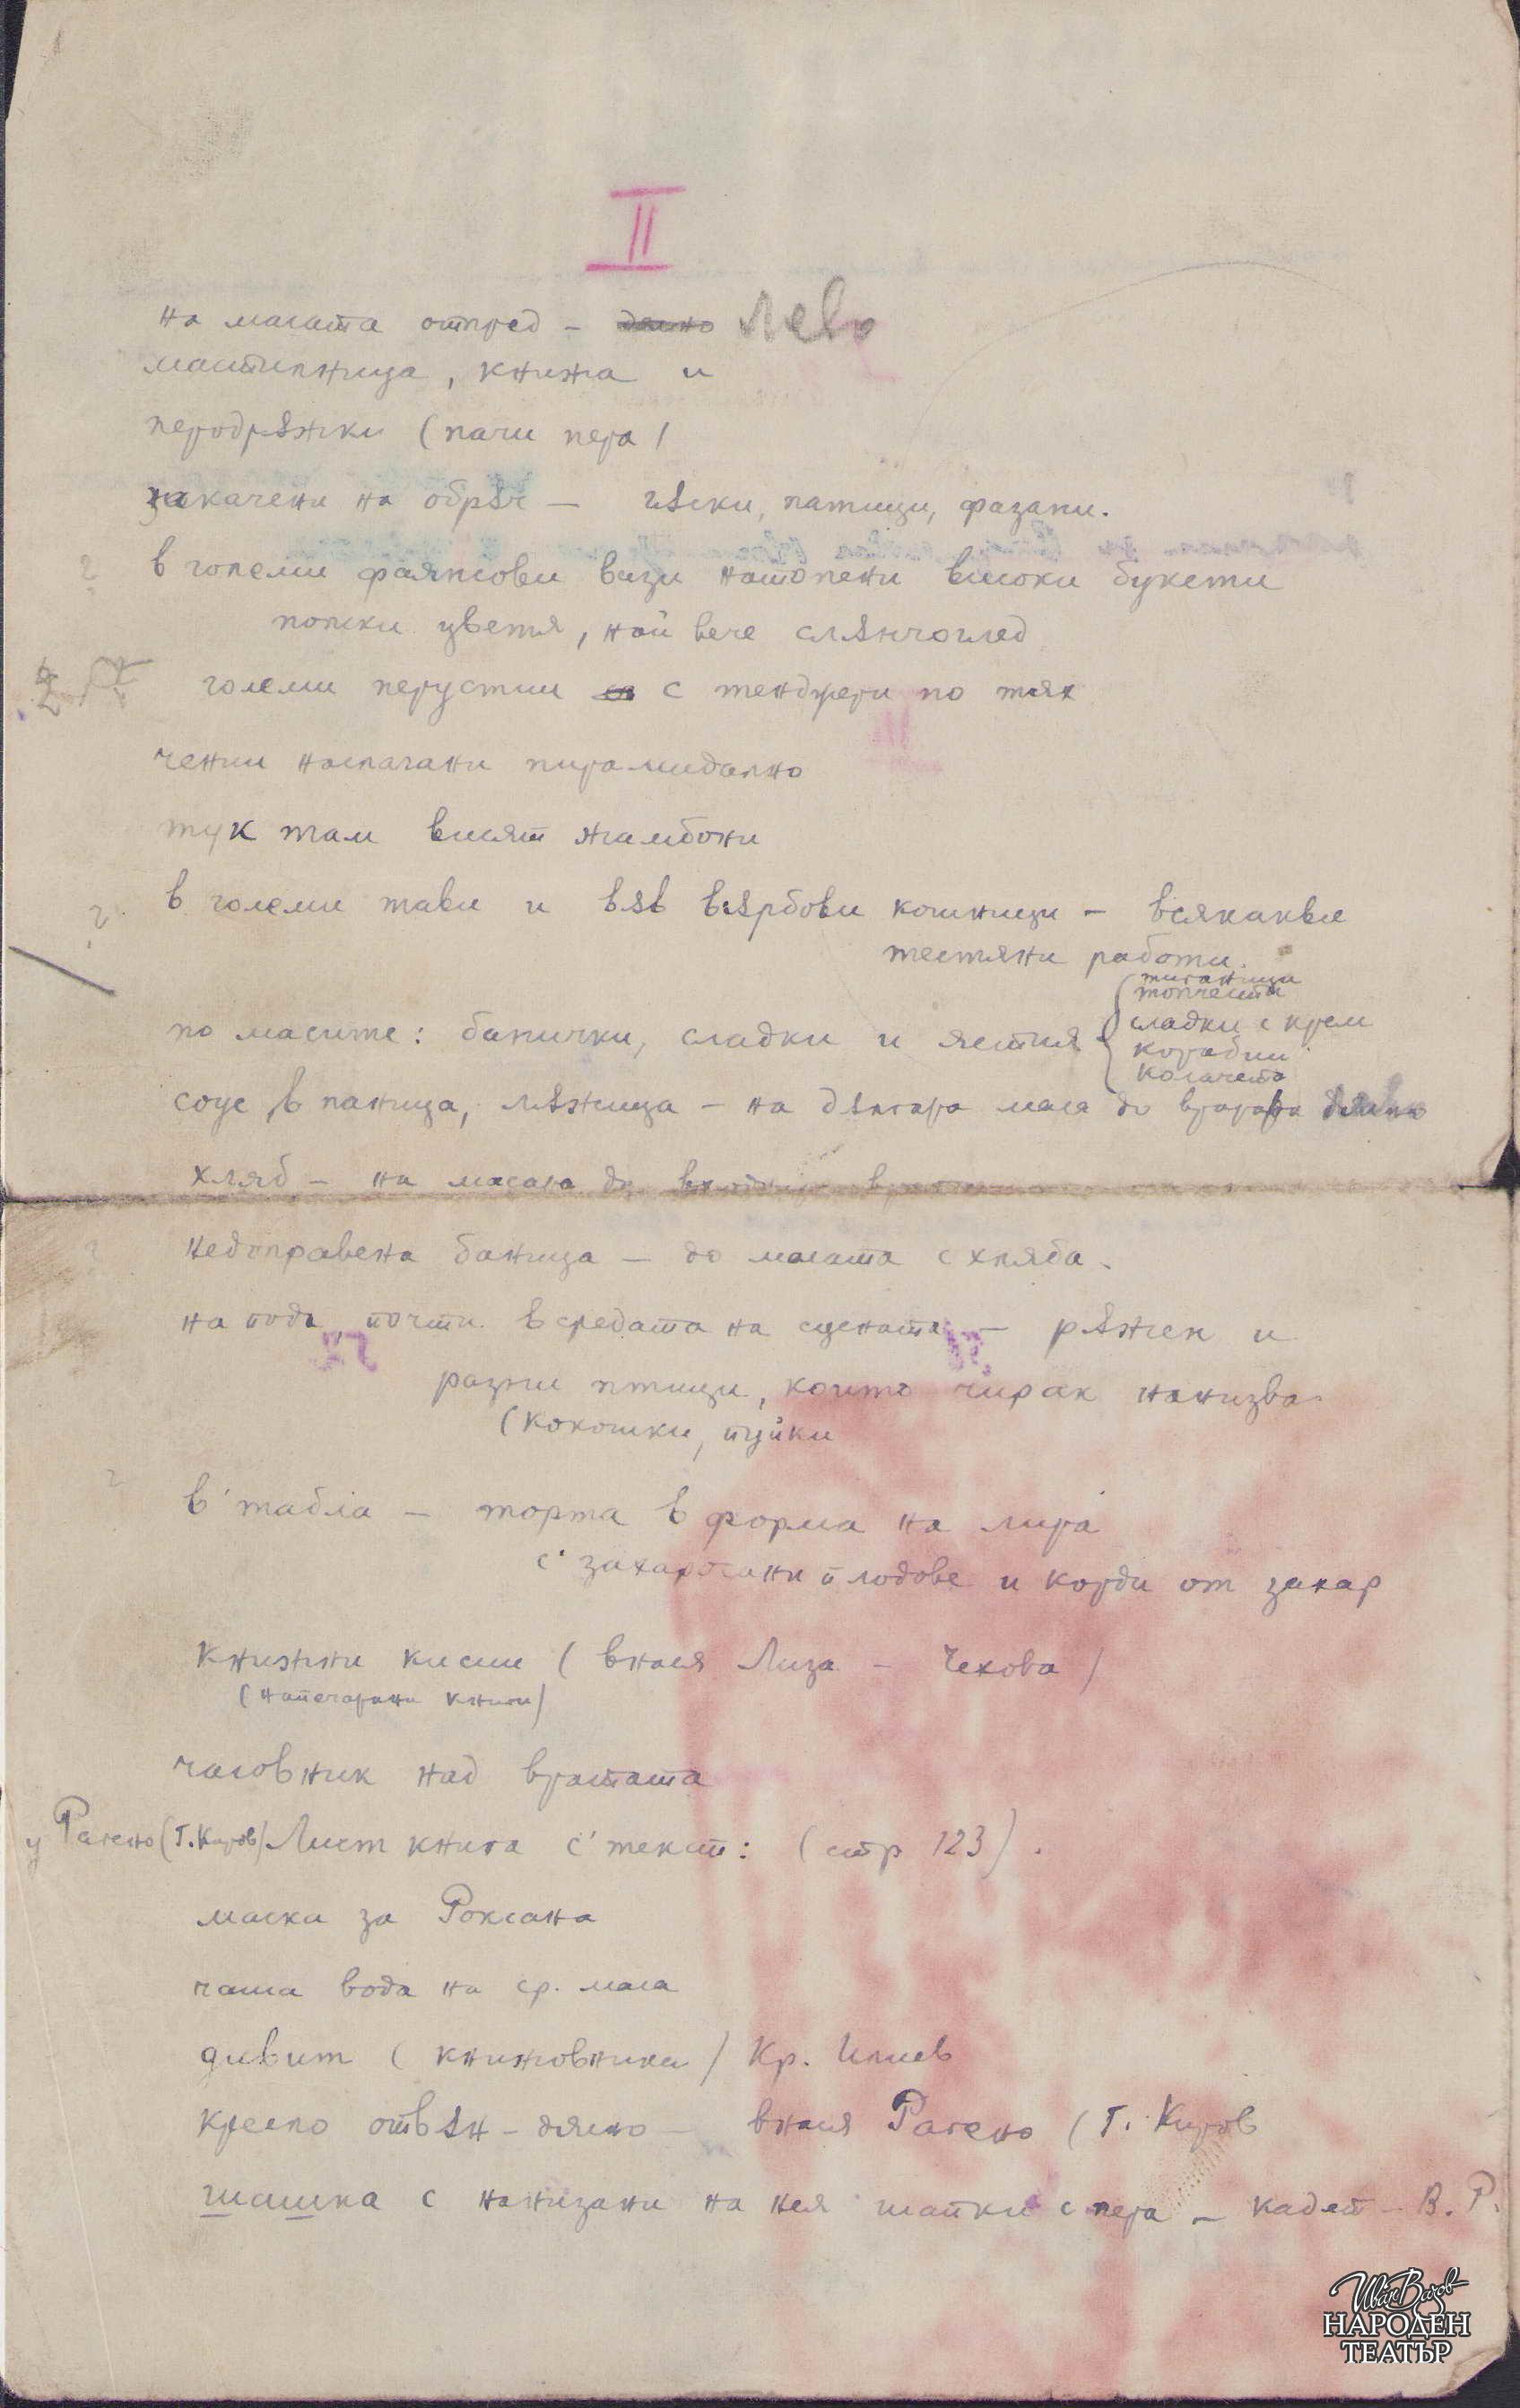 II
на масата отпред - дясно Лево
мастилница, книжа и
перодръжки (пачи пера)
закачени на обръч — гъски, патици, фазани.
? в големи фаянсови вази натопени високи букети
полски цветя, най вече слънчоглед
2 големи перустии с тенджери по тях
чении наслагани пирамидално
тук там висят жамбони
? в големи тави и във върбови кошници - всякакви
тестяни работи.
по масите: банички, сладки и ястия
(тиганица
топчета
сладки с крем
корабии
колачета
соус в паница, лъжица - на дългата маса до врата
хляб - на масата до входната врата
? недоправена баница — до масата с хляба.
на пода, почти в средата на сцената - ръжен и
разни птици, които чирак нанизва
(кокошки, пуйки
? в табла — торта в форма на лира
с захаросани плодове и корди от захар
Книжни кесии (внася Лиза - Чехова)
(напечатани книги)
часовник над вратата
у Рагено (Г. Киров) Лист книга с текст: (стр 123).
маска за Роксана
чаша вода на ср. маса
дивит (книжовника) Кр. Илиев
кресло отвън - дясно - внася Рагено (Г. Киров
шашка с нанизани на нея шапки с пера - кадет - В. Р.
Иван Вазов
НАРОДЕН
ТЕАТЪР